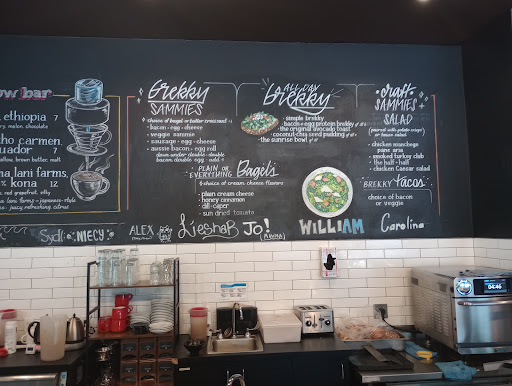 ow bar
ethiopia 7
melon, chocolate
cho carmen,
uador 7
brown butter, malt
na lani farms,
kona 12
red grapefruit
lani farms - japanese-style
juicy refreshing citrus
Brekky
SAMMIES
choice of bagel or butter croissant +1
- bacon - egg - cheese
- veggie sammie
- sausage - egg - cheese
- aussie bacon - egg roll
down under double double
bacon double egg - add +
PLAIN OR
EVERYTHING
Bagels
choice of cream cheese flavors
- plain cream cheese
- honey cinnamon
- dill-caper
- sun dried tomato
ALL DAY
Brekky
- simple brekky
- bacon + egg protein brekky
- the original avocado toast
- coconut-chia seed pudding
- the sunrise bowl
craft
SAMMIES
SALAD
(paired with potato crisps)
or house salad
- chicken manchego
pana aria
- smoked turkey club
- the half-half
- chicken Caesar salad
BREKKY tacos
choice of bacon
or veggie
Sydl
NIECY
ALEX
LieshaB
Jo!
WILLIAM
Carolina
04:46